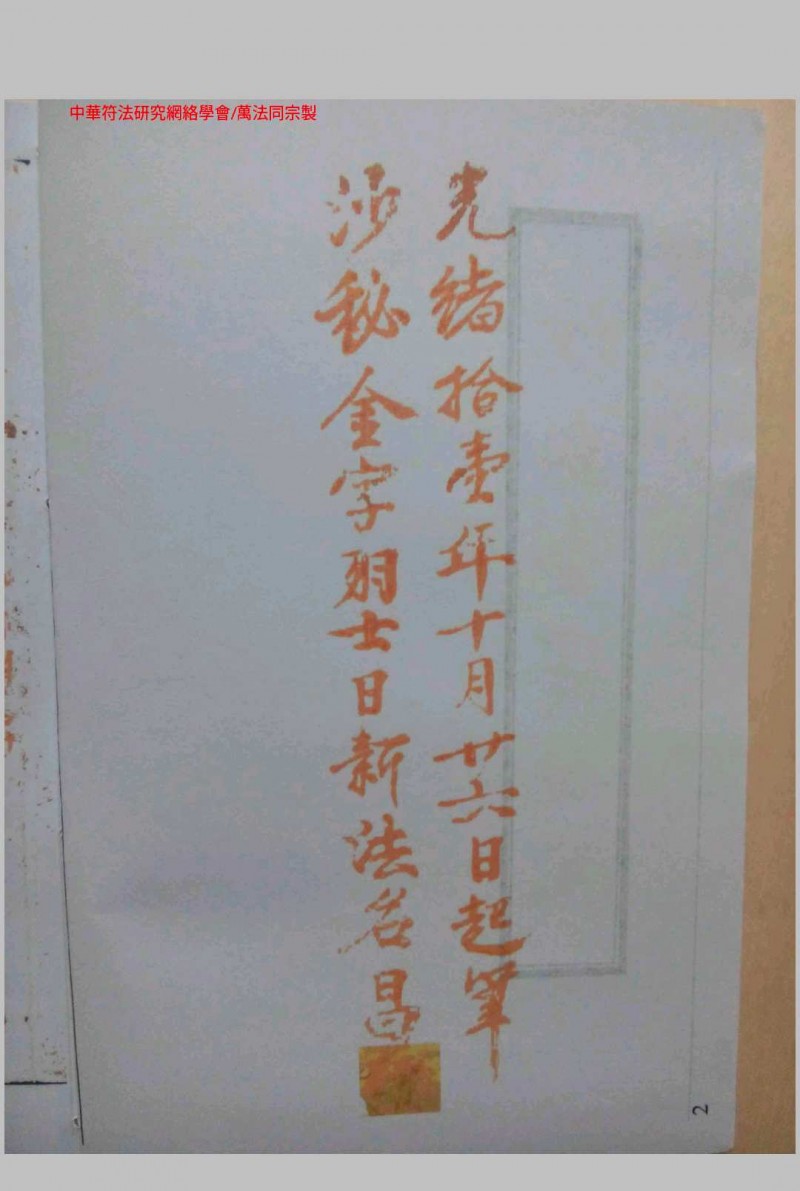 中華符法研究網絡學會/萬法同宗製
光緒拾壹年十月廿六日起筆
秘金字羽士日新法名昌
2